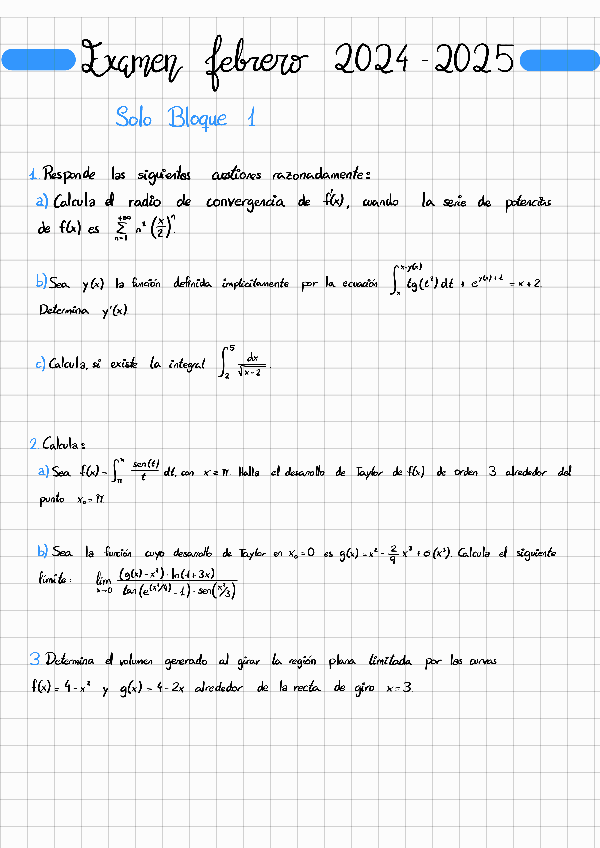 Examen febrero 2024-2025
Solo Bloque 1
1. Responde las siguientes cuestiones razonadamente:
a) Calcula el radio de convergencia de f'(x), cuando la serie de potencias
de f(x) es \sum_{n=1}^{+\infty} n^2 (x/2)^n.
b) Sea y(x) la función definida implícitamente por la ecuación \int_x^{x-y(x)} tg(t^2) dt + e^{y(x)+2} = x+2.
Determina y'(x)
c) Calcula, si existe la integral \int_2^5 \frac{dx}{\sqrt{x-2}}.
2. Calcula:
a) Sea f(x) = \int_π^x \frac{sen(t)}{t} dt, con x ≥ π. Halla el desarrollo de Taylor de f(x) de orden 3 alrededor del
punto x_0 = π
b) Sea la función cuyo desarrollo de Taylor en x_0 = 0 es g(x) = x^2 - \frac{2}{9} x^3 + o(x^3). Calcula el siguiente
límite: \lim_{x→0} \frac{(g(x)-x^2) · ln(1+3x)}{tan(e^{(x^3/4)} - 1) · sen(x/3)}
3. Determina el volumen generado al girar la región plana limitada por las curvas
f(x) = 4-x^2 y g(x) = 4-2x alrededor de la recta de giro x=3